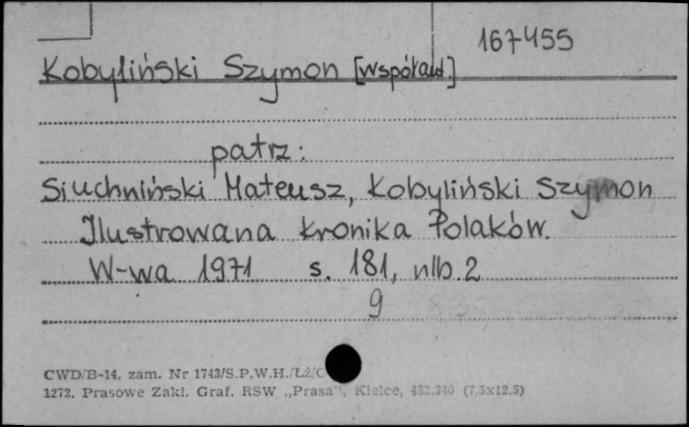 167455
Kobyliński Szymon [współaut]
patrz:
Siuchniński Mateusz, Kobyliński Szymon
Ilustrowana kronika Polaków.
W-wa 1971 s. 181, nlb. 2
9
CWD/B-14, zam. Nr 1743/S.P.W.H./Łź/C
1272. Prasowe Zakł. Graf. RSW „Prasa", Kielce, 482.340 (7,5x12,5)